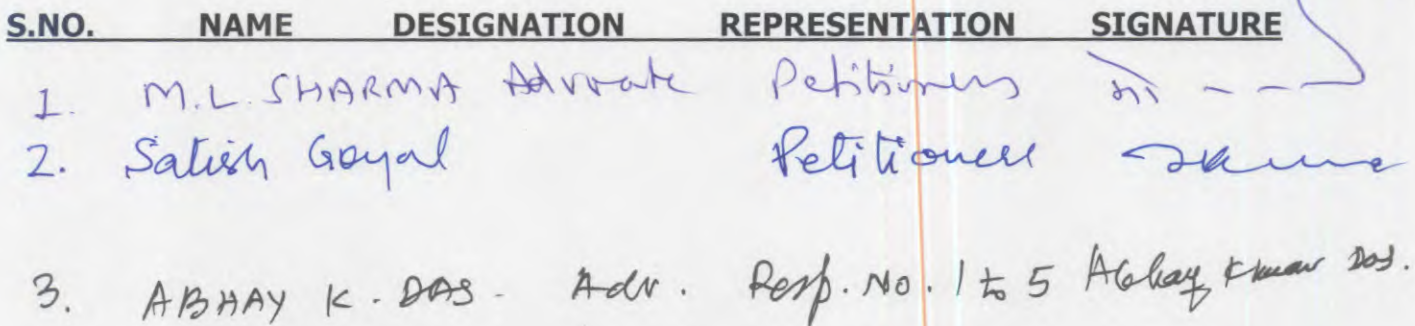 S.NO. NAME DESIGNATION REPRESENTATION SIGNATURE
1. M.L. SHARMA Advocate Petitioners
2. Satish Goyal Petitioner
3. ABHAY K. DAS. Adv. Resp. No. 1 to 5 Abhay Kumar Das.